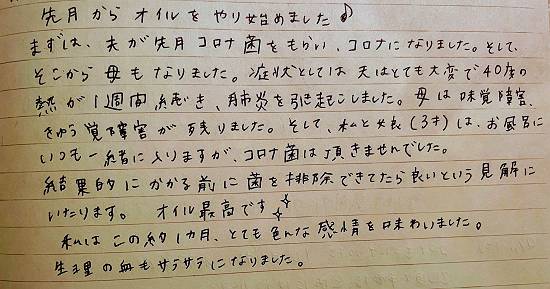 先月からオイルをやり始めました♪
まずは、夫が先月コロナ菌をもらい、コロナになりました。そして、
そこから母もなりました。症状としては夫はとても大変で40度の
熱が1週間続き、肺炎を引き起こしました。母は味覚障害、
きゅう覚障害が残りました。そして、私と娘(3才)は、お風呂に
いつも一緒に入りますが、コロナ菌は頂きませんでした。
結果的にかかる前に菌を排除できてたら良いという見解に
いたります。 オイル最高です✧✧
私はこの約1カ月、とても色んな感情を味わいました。
生理の血もサラサラになりました。